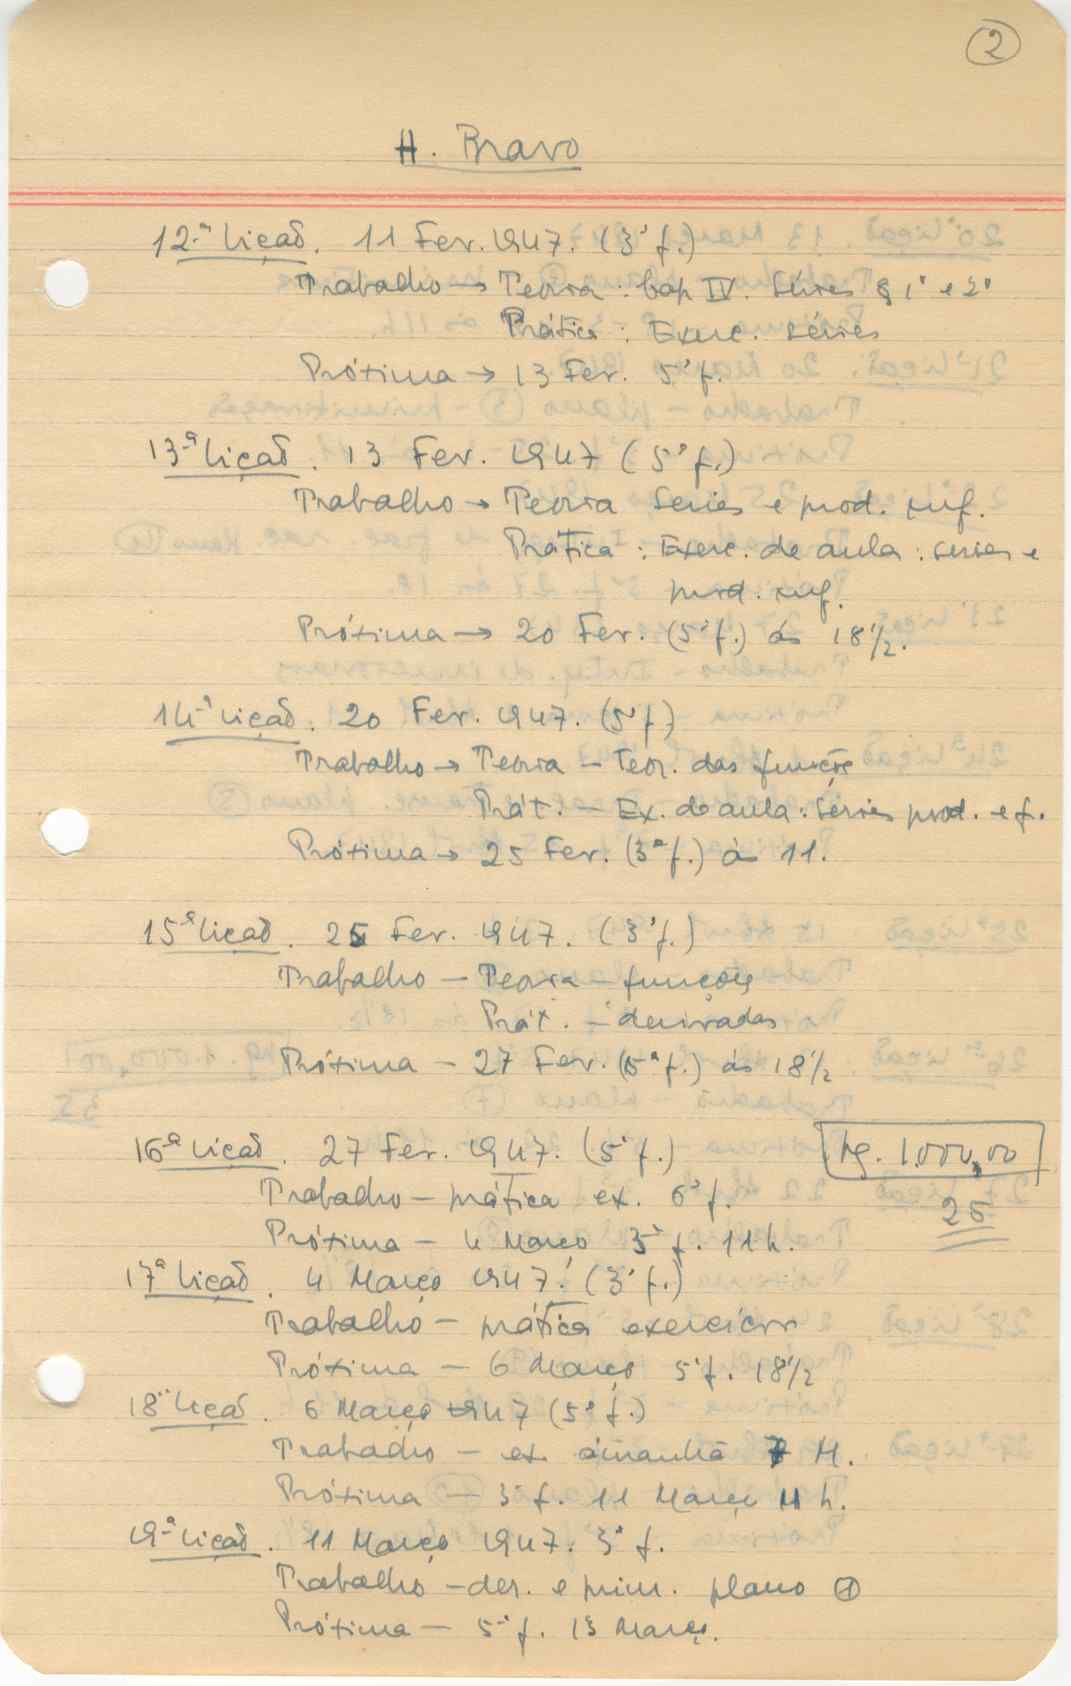 2
H. Bravo
12.ª Lição. 11 Fev. 1947. (3ª f.)
Trabalho → Teoria: Cap IV. Séries § 1º e 2º
Prática: Exerc. séries
Próxima → 13 Fev. 5ª f.
13ª Lição. 13 Fev. 1947 (5ª f.)
Trabalho → Teoria Séries e prod. inf.
Prática: Exerc. de aula: séries e
prod. inf.
Próxima → 20 Fev. (5ª f.) ás 18 1/2.
14ª Lição. 20 Fev. 1947. (5ª f.)
Trabalho → Teoria - Teor. das funções
Prát. - Ex. de aula: Séries prod. e f.
Próxima → 25 Fev. (3ª f.) ás 11.
15ª Lição. 25 Fev. 1947. (3ª f.)
Trabalho - Teoria - funções
Prát. - derivadas
Próxima - 27 Fev. (5ª f.) ás 18 1/2
16ª Lição. 27 Fev. 1947. (5ª f.)
Pg. 1.000,00
25
Trabalho - prática ex. 6ª f.
Próxima - 4 Março 3ª f. 11 h.
17ª Lição. 4 Março 1947. (3ª f.)
Trabalho - prática exercícios
Próxima - 6 Março 5ª f. 18 1/2
18ª Lição. 6 Março 1947 (5ª f.)
Trabalho - ex. amanhã 7 M.
Próxima - 3ª f. 11 Março 11 h.
19ª Lição. 11 Março 1947. 3ª f.
Trabalho - der. e prim. plano 1
Próxima - 5ª f. 13 Março.